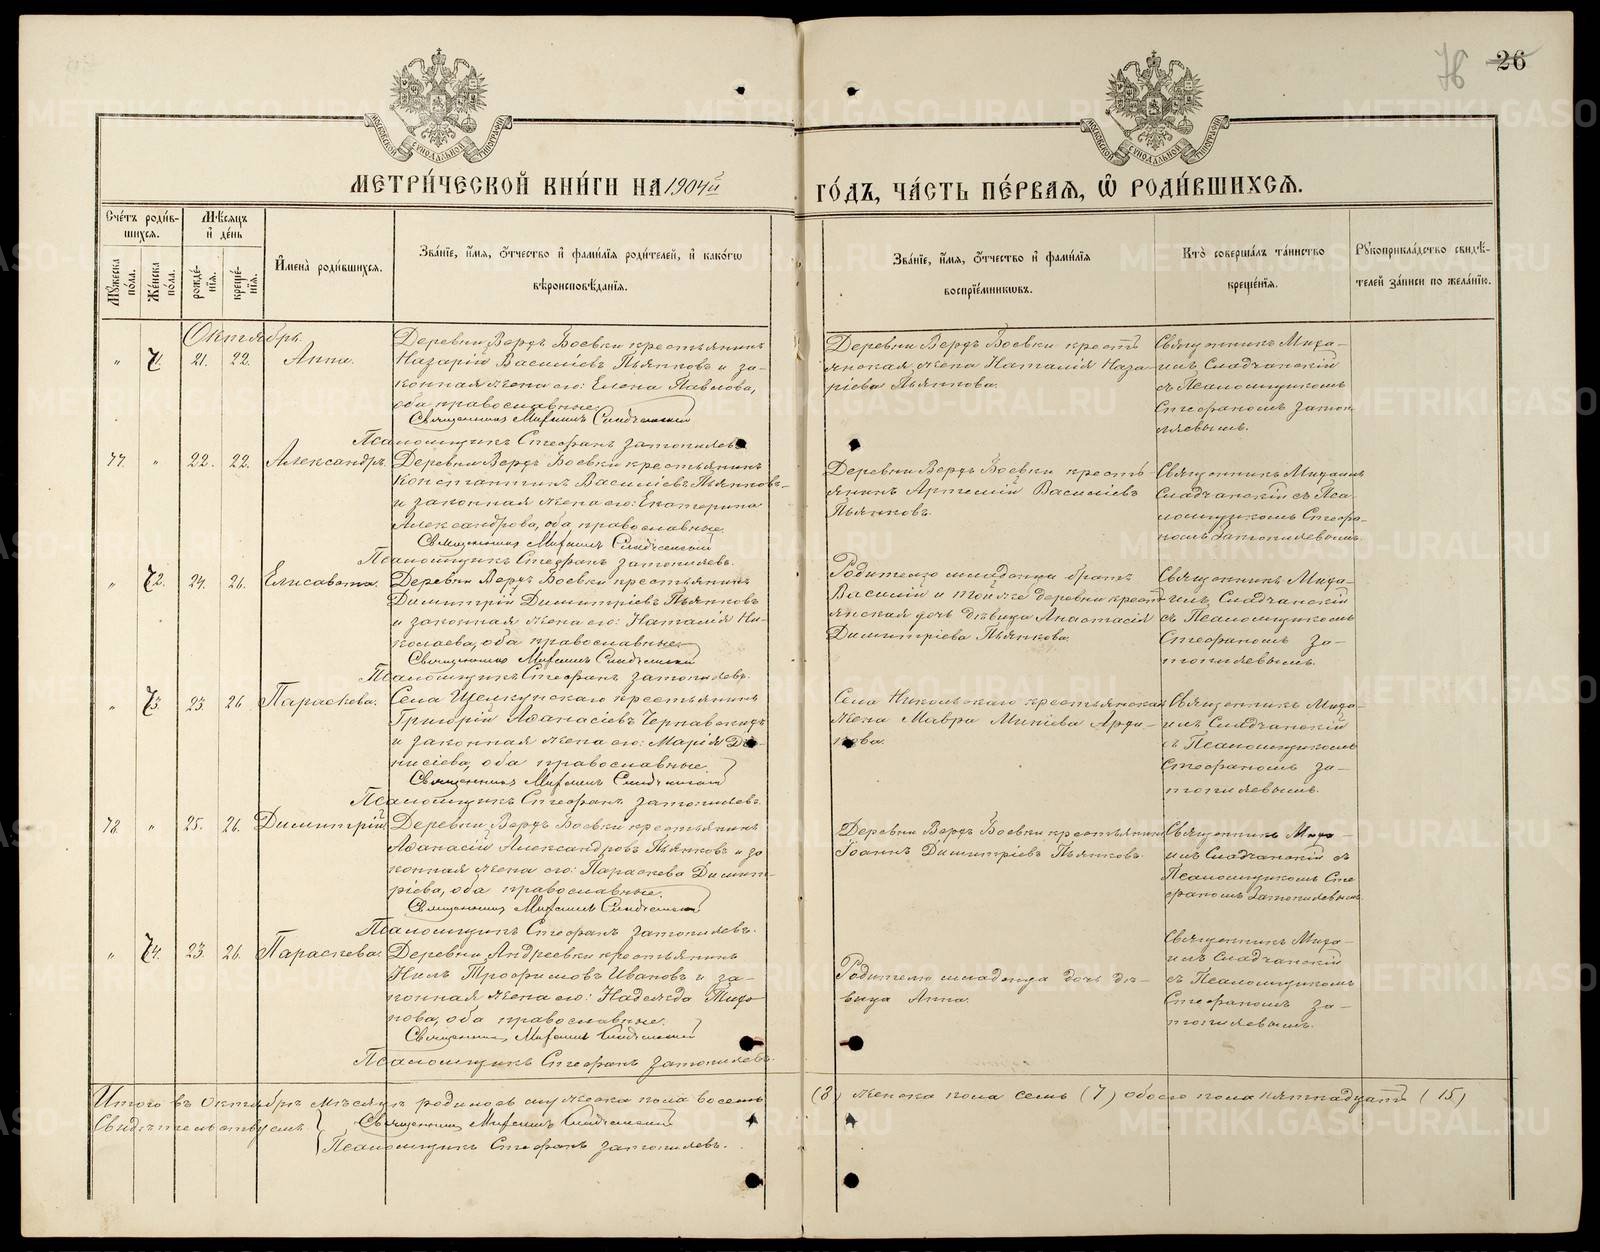 76 26
МОСКОВСКОЙ СѴНОДАЛЬНОЙ ТИПОГРАФІИ
МОСКОВСКОЙ СѴНОДАЛЬНОЙ ТИПОГРАФІИ
МЕТРИ́ЧЕСКОЙ КНИ́ГИ НА 1904й ГО́ДЪ, ЧА́СТЬ ПЕ́РВАЯ, Ѡ РОДИ́ВШИХСЯ.
Сче́тъ роди́в-
шихся.
Мѣ́сяцъ
и де́нь
Му́жеска
по́ла.
Же́нска
по́ла.
рожде́-
нія.
креще́-
нія.
Имена̀ роди́вшихся.
Зва́ніе, и́мя, о́тчество и фами́лія роди́телей, и како́гѡ
вѣроисповѣ́данія.
Зва́ніе, и́мя, о́тчество и фами́лія
воспріе́мниковъ.
Кто̀ соверша́лъ та́инство
креще́нія.
Рукоприкла́дство свидѣ́-
телей за́писи по жела́нію.
Октябрь
" 71. 21. 22. Анна.
Деревни Верхъ Боевки крестьянинъ
Назарій Василіевъ Пьянковъ и за-
конная жена его: Елена Павлова,
оба православные.
Священникъ Михаилъ Сладчанскій
Псаломщикъ Стефанъ Затопляевъ
Деревни Верхъ Боевки кресть
янская жена Наталія Наза
ріева Пьянкова.
Священникъ Миха-
илъ Сладчанскій
съ Псаломщикомъ
Стефаномъ Затоп
ляевымъ.
77. " 22. 22. Александръ.
Деревни Верхъ Боевки крестьянинъ
Константинъ Василіевъ Пьянковъ
и законная жена его: Екатерина
Александрова, оба православные.
Священникъ Михаилъ Сладчанскій
Псаломщикъ Стефанъ Затопляевъ.
Деревни Верхъ Боевки кресть
янинъ Артемій Василіевъ
Пьянковъ.
Священникъ Михаилъ
Сладчанскій съ Пса
ломщикомъ Стефа-
номъ Затопляевымъ.
" 72. 24. 26. Елисавета.
Деревни Верхъ Боевки крестьянинъ
Димитрій Димитріевъ Пьянковъ
и законная жена его: Наталія Ни-
колаева, оба православные.
Священникъ Михаилъ Сладчанскій
Псаломщикъ Стефанъ Затопляевъ.
Родителю младенца братъ
Василій и той же деревни крест
янская дочь дѣвица Анастасія
Димитріева Пьянкова.
Священникъ Миха-
илъ Сладчанскій
съ Псаломщикомъ
Стефаномъ За-
топляевымъ.
" 73. 23. 26 Параскева.
Села Щелкунскаго крестьянинъ
Григорій Аѳанасіевъ Чернавскихъ
и законная жена его: Марія Ді-
нисіева, оба православные.
Священникъ Михаилъ Сладчанскій
Псаломщикъ Стефанъ Затопляевъ.
Села Никольскаго крестьянская
жена Мавра Миніева
Священникъ Миха-
илъ Сладчанскій
съ Псаломщикомъ
Стефаномъ За-
топляевымъ.
78. " 25. 26. Димитрій
Деревни Верхъ Боевки крестьянинъ
Аѳанасій Александровъ Пьянковъ и за
конная жена его: Параскева Димит-
ріева, оба православные.
Священникъ Михаилъ Сладчанскій
Псаломщикъ Стефанъ Затопляевъ.
Деревни Верхъ Боевки крестьянинъ
Іоаннъ Димитріевъ Пьянковъ.
Священникъ Миха-
илъ Сладчанскій съ
Псаломщикомъ Сте
фаномъ Затопляевымъ.
" 74. 23. 26. Параскева
Деревни Андреевки крестьянинъ
Нилъ Трофимовъ Ивановъ и за-
конная жена его: Надежда Тихо
нова, оба православные.
Священникъ Михаилъ Сладчанскій
Псаломщикъ Стефанъ Затопляевъ.
Родителю младенца дочь дѣ-
вица Анна.
Священникъ Миха-
илъ Сладчанскій
съ Псаломщикомъ
Стефаномъ За-
топляевымъ.
Итого въ Октябрѣ мѣсяцѣ родилось мужеска пола восемь (8) женска пола семь (7) обоего пола пятнадцать (15)
Свидѣтельствуемъ Священникъ Михаилъ Сладчанскій
Псаломщикъ Стефанъ Затопляевъ.
METRIKI.GASO-URAL.RU